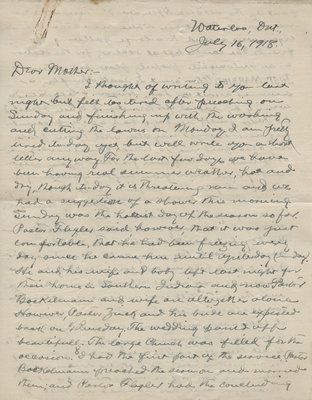 Waterloo, Ont.
July 16, 1918.
Dear Mother:-
I thought of writing to you last
night but felt too tired after preaching on
Sunday and finishing up with the washing
and cutting the lawns on Monday. I am fully
tired to-day yet but will write you a short
letter anyway. For the last few days we have
been having real summer weather, hot and
dry, though to-day it is threatening rain and we
had a suggestion of a shower this morning.
Sunday was the hottest day of the season so far.
Pastor said however that it was just
comfortable, that he had been freezing every
day since he came here until yesterday (Sunday).
He and his wife and baby left last night for
their home in Southern Indiana and now Pastor
Bockelmann and wife are altogether alone.
However, Pastor Zinck and his bride are expected
back on Thursday. The wedding passed off
beautifully. The large Church was filled for the
occasion. I had the first part of the service, Pastor
Bockelmann preached the sermon and married
them, and Pastor had the concluding